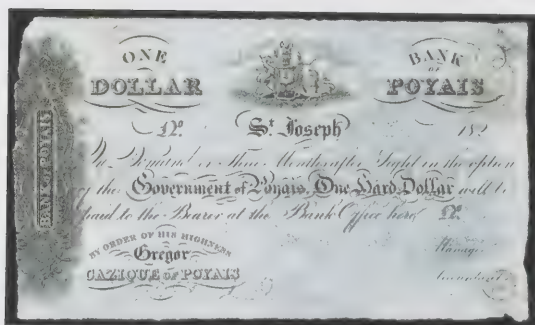 ONE
DOLLAR
BANK
of
POYAIS
BANK of POYAIS
Nº
St Joseph
182
On Demand or Three Months after Sight in the option
of the Government of Poyais, One Hard Dollar will be
paid to the Bearer at the Bank Office here. Nº
BY ORDER OF HIS HIGHNESS
Gregor
CAZIQUE of POYAIS
Manager